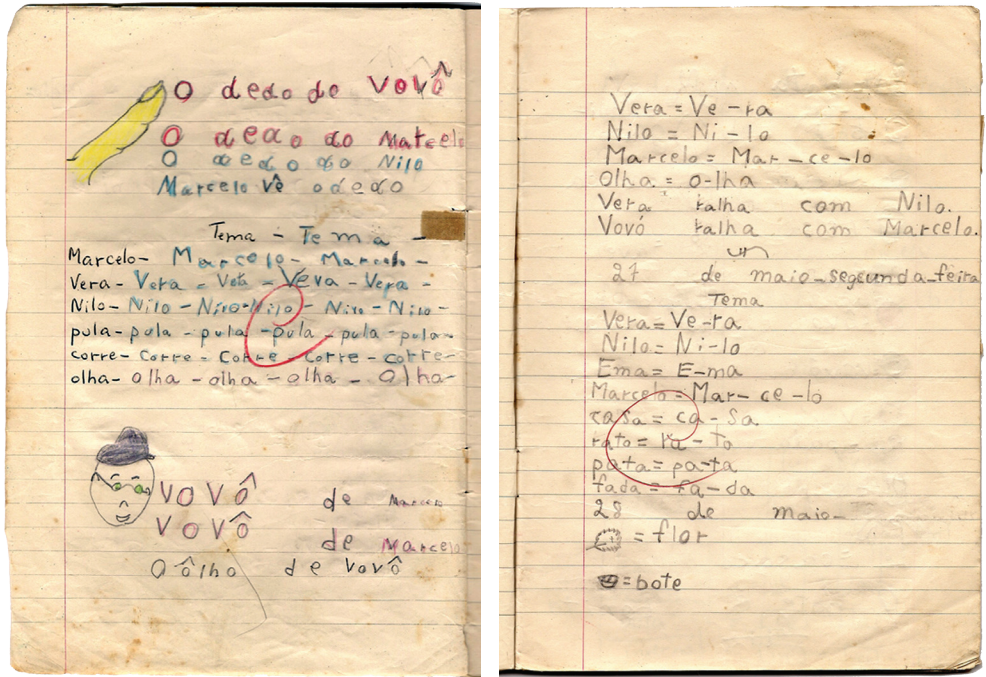 O dedo de Vovô
O dedo do Marcelo
O dedo do Nilo
Marcelo vê o dedo
Tema - Tema -
Marcelo - Marcelo - Marcelo -
Vera - Vera - Vera - Vera - Vera -
Nilo - Nilo - Nilo - Nilo - Nilo - Nilo -
pula - pula - pula - pula - pula - pula -
corre - corre - corre - corre - corre -
olha - olha - olha - olha - Olha -
VOVÔ de Marcelo
VOVÔ
de Marcelo
O ôlho de vovô
Vera = Ve - ra
Nilo = Ni - lo
Marcelo = Mar - ce - lo
Olha = o-lha
Vera ralha com Nilo.
Vovó ralha com Marcelo.
27 de maio - segunda-feira
Tema
Vera = Ve-ra
Nilo = Ni-lo
Ema = E-ma
Marcelo = Mar - ce - lo
casa = ca - sa
rato = ra - to
pata = pa-ta
fada = fa - da
28 de maio -
= flor
= bote